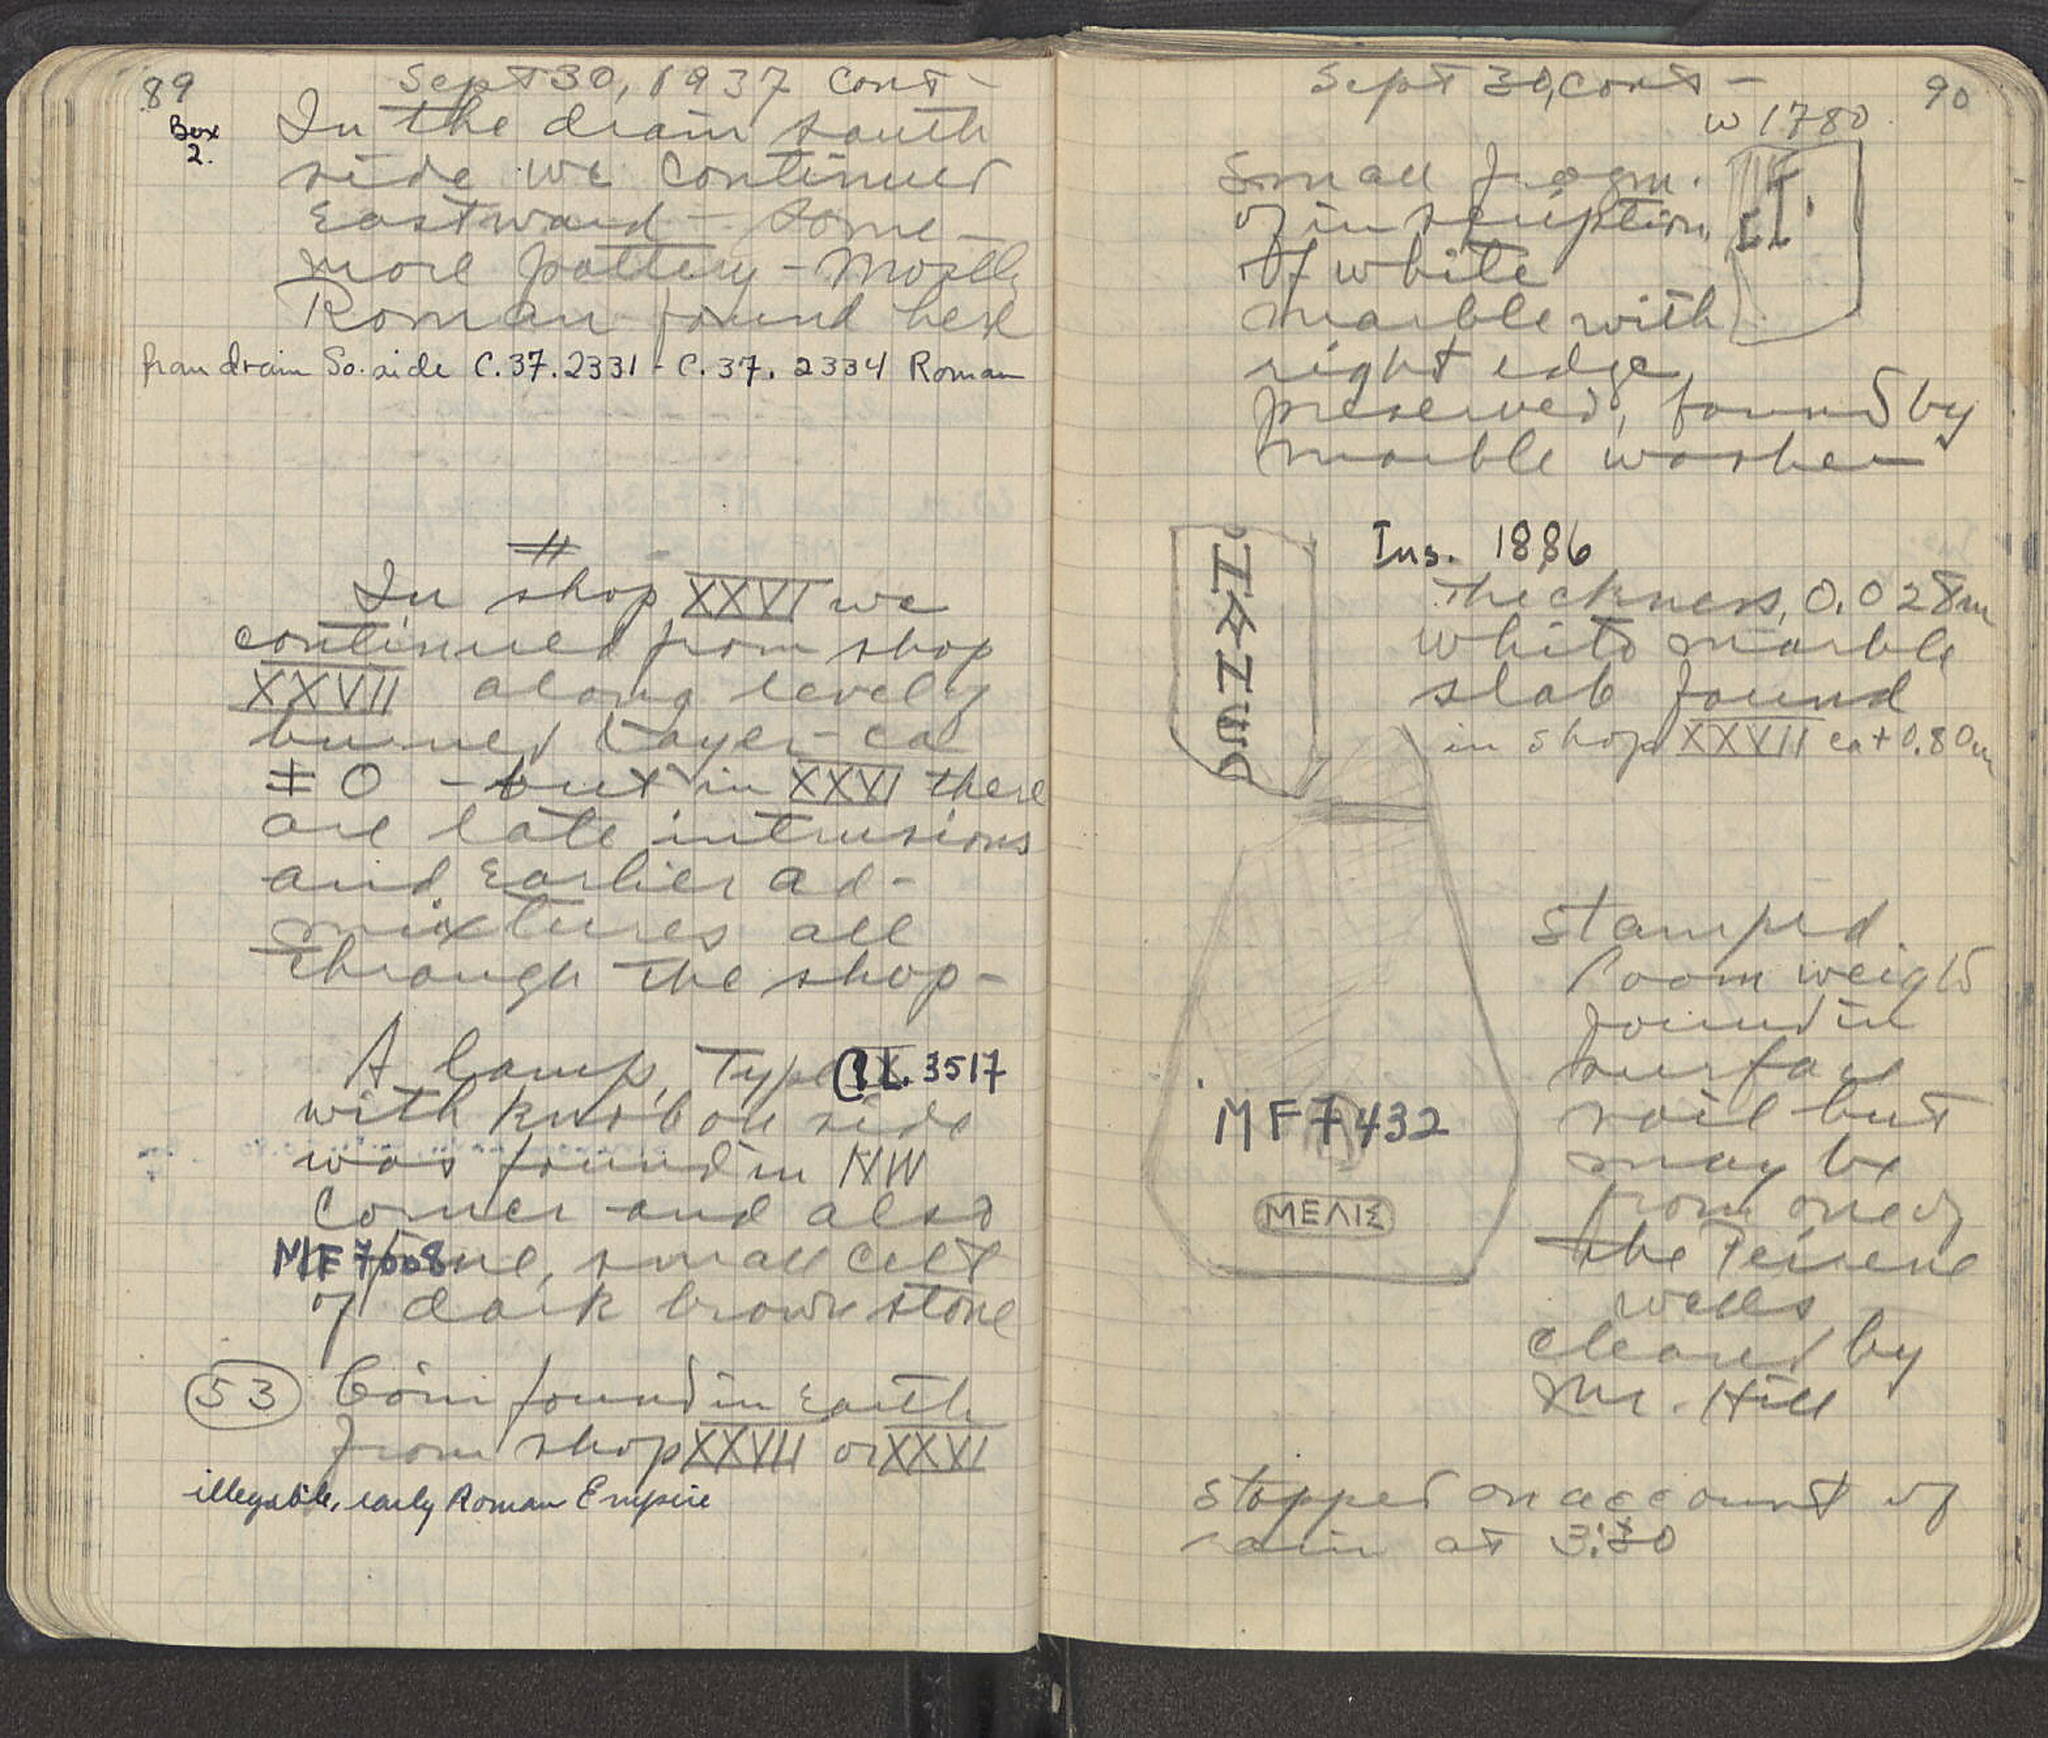 89
Sept 30, 1937 cont -
Box
2.
In the drain south
side we continued
Eastward - some
more pottery - mostly
Roman found here
from drain So. side C.37.2331 - C.37.2334 Roman
In shop XXVI we
continued from shop
XXVII along level of
burned layer - ca
± 0 - but in XXVI there
are late intrusions
and Earlier ad-
mixtures all
through the shop -
A lamp, Type CL. 3517
with knob on side
was found in NW
Corner and also
MF 7608 fine, small celt
of dark brown stone
53 Coin found in Earth
from shop XXVII or XXVI
illegible, early Roman Empire
Sept 30, cont -
90
w 1780
Small fragm.
of inscription,
of white
marble with
right edge
preserved, found by
marble washer
Ins. 1886
Thickness, 0.028m
white marble
slab found
in shop XXVII ca + 0.80m
stamped
loom weight
found in
surface
soil but
may be
from one of
the Peirene
wells
cleared by
Mr. Hill
MF 7432
ΜΕΛΙΣ
stopped on account of
rain at 3:30